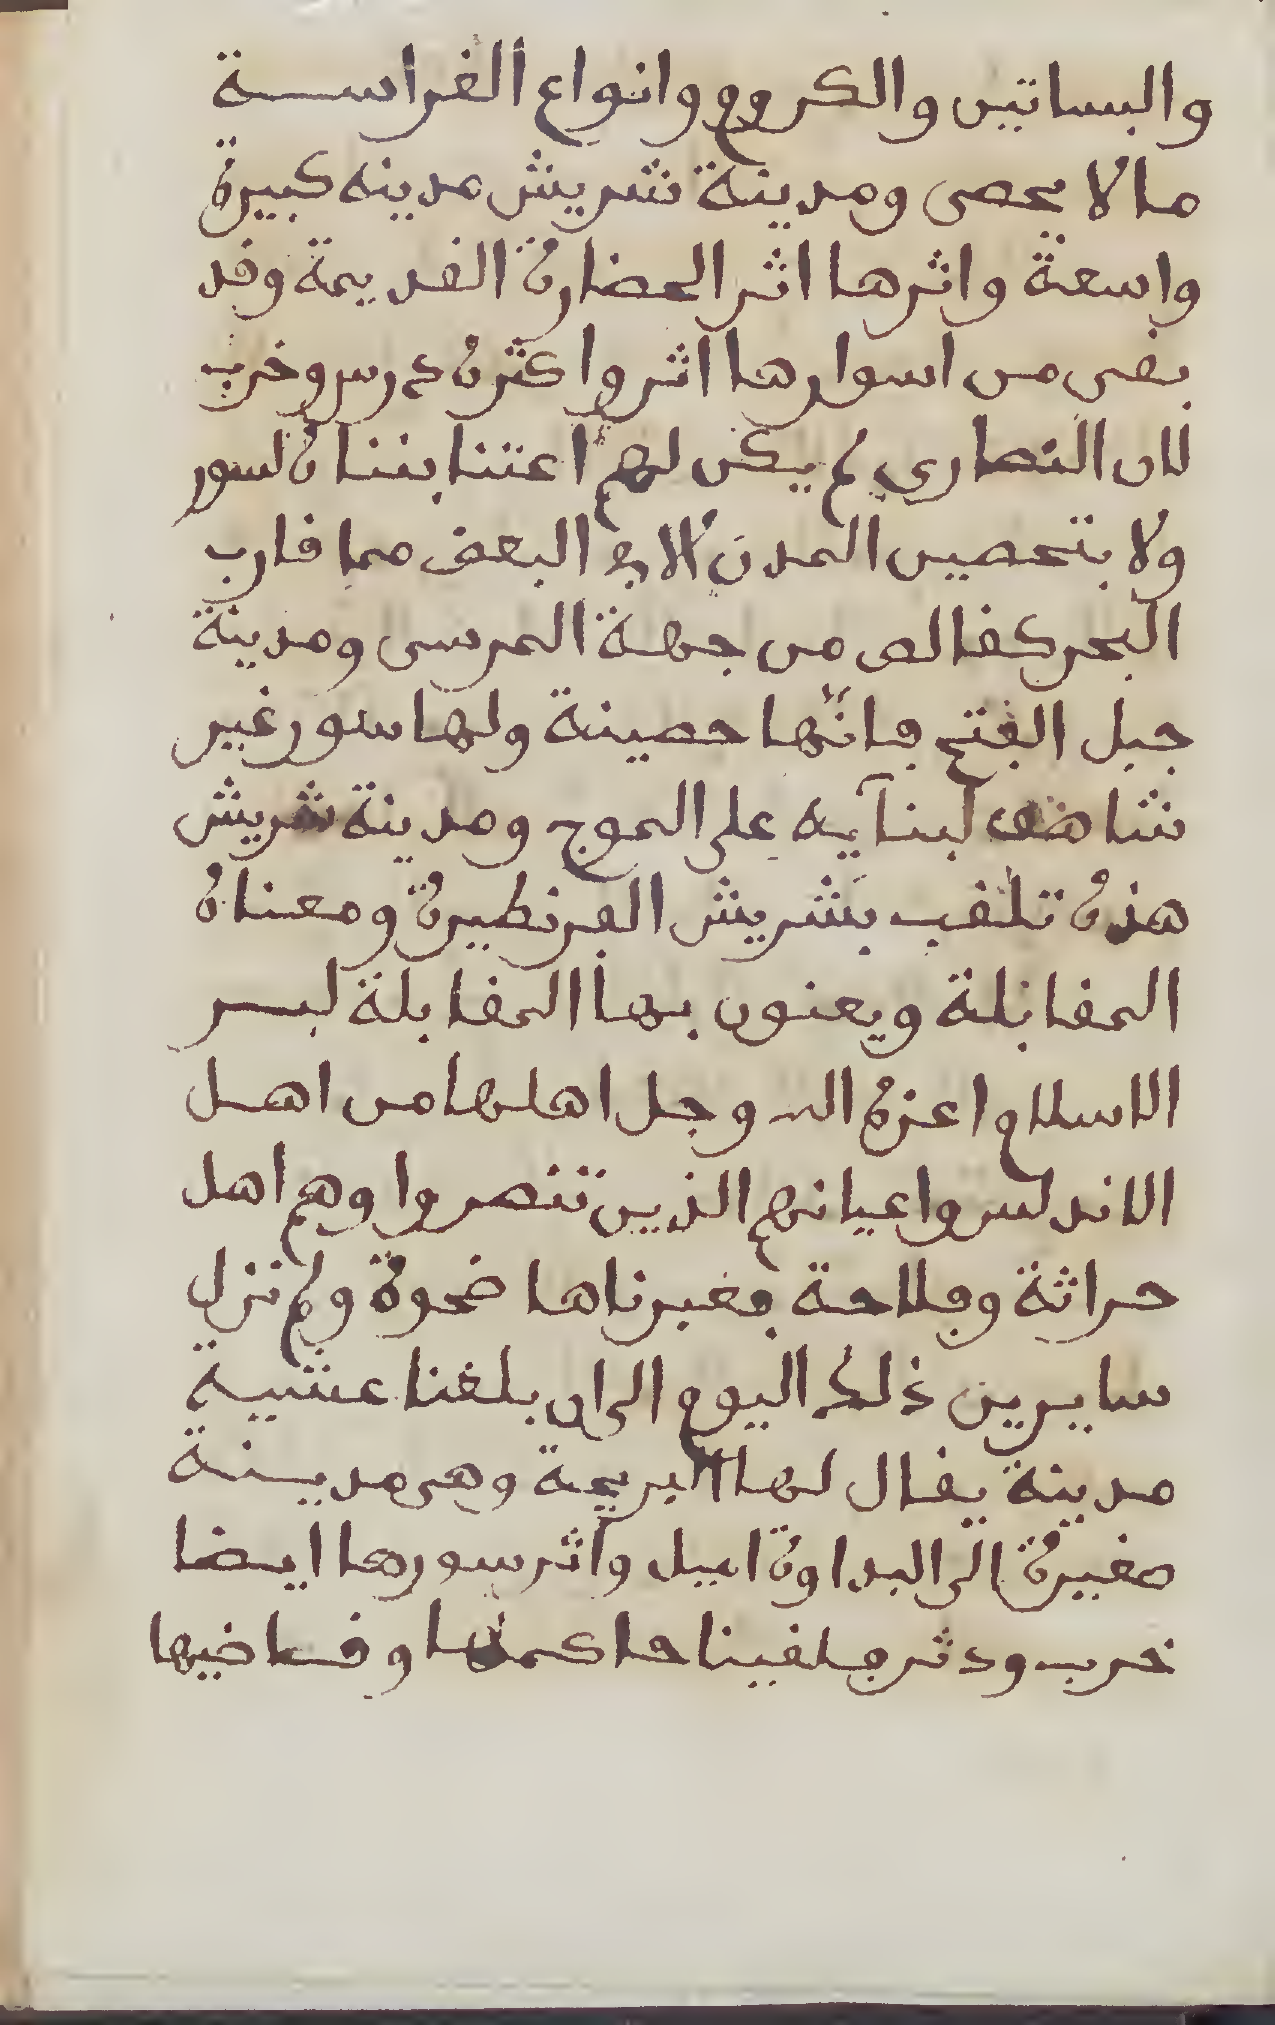 والبساتين والكروم وانواع الغراسة
ما لا يحصى ومدينة شريش مدينه كبيرة
واسعة واثرها اثر الحضارة القديمة وقد
بقى من اسوارها اثر واكثره درس وخرب
لان النصارى لم يكن لهم اعتنا ببنا لسور
ولا بتحصين المدن الا في البعض مما قارب
البحر كقالص من جهة المرسى ومدينة
جبل الفتح فانها حصينة ولها سور غير
شاهق لبنآيه على الموج ومدينة شريش
هذه تلقب بشريش الفرنطيرة ومعناه
المقابلة ويعنون بها المقابلة لبر
الاسلام اعزه الله وجل اهلها من اهل
الاندلس واعيانهم الذين تنصروا وهم اهل
حراثة وفلاحة فعبرناها ضحوة ولم نزل
سايرين ذلك اليوم الى ان بلغنا عشية
مدينة يقال لها البريجة وهى مدينة
صغيرة الى البداوة اميل واثر سورها ايضا
خرب ودثر فلقينا حاكمها وقاضيها